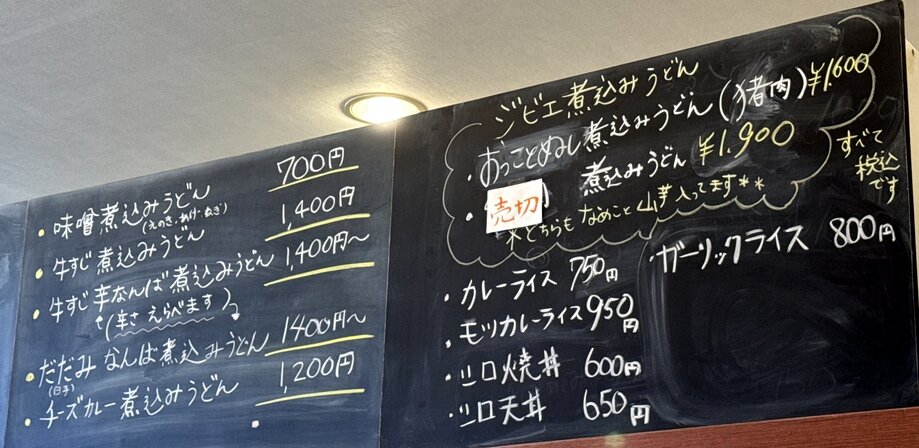 ・味噌煮込みうどん 700円
(えのき・あげ・ねぎ)
・牛すじ煮込みうどん 1,400円
・牛すじ辛なんば煮込みうどん 1,400円〜
(辛さえらべます)
・だだみなんば煮込みうどん 1400円〜
(白子)
・チーズカレー煮込みうどん 1,200円
ジビエ煮込みうどん
・おっことぬし煮込みうどん(猪肉)¥1.600
・売切 煮込みうどん ¥1.900
*どちらもなめこと山芋入ってます**
すべて
税込
です
・カレーライス 750円
・モツカレーライス 950円
・ツロ焼丼 600円
・ツロ天丼 650円
・ガーリックライス 800円